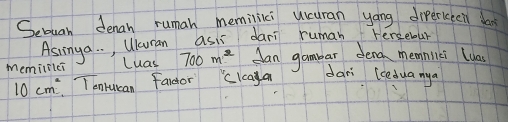 Sebuah denah rumah memiliki ukuran yang diperkecil dari
Aslinya.., Ukuran asli dari rumah tersebut
memiliki luas 700 m² dan gambar dena memnlici luas
10 cm². Tentukan Faktor Skala dari keduanya